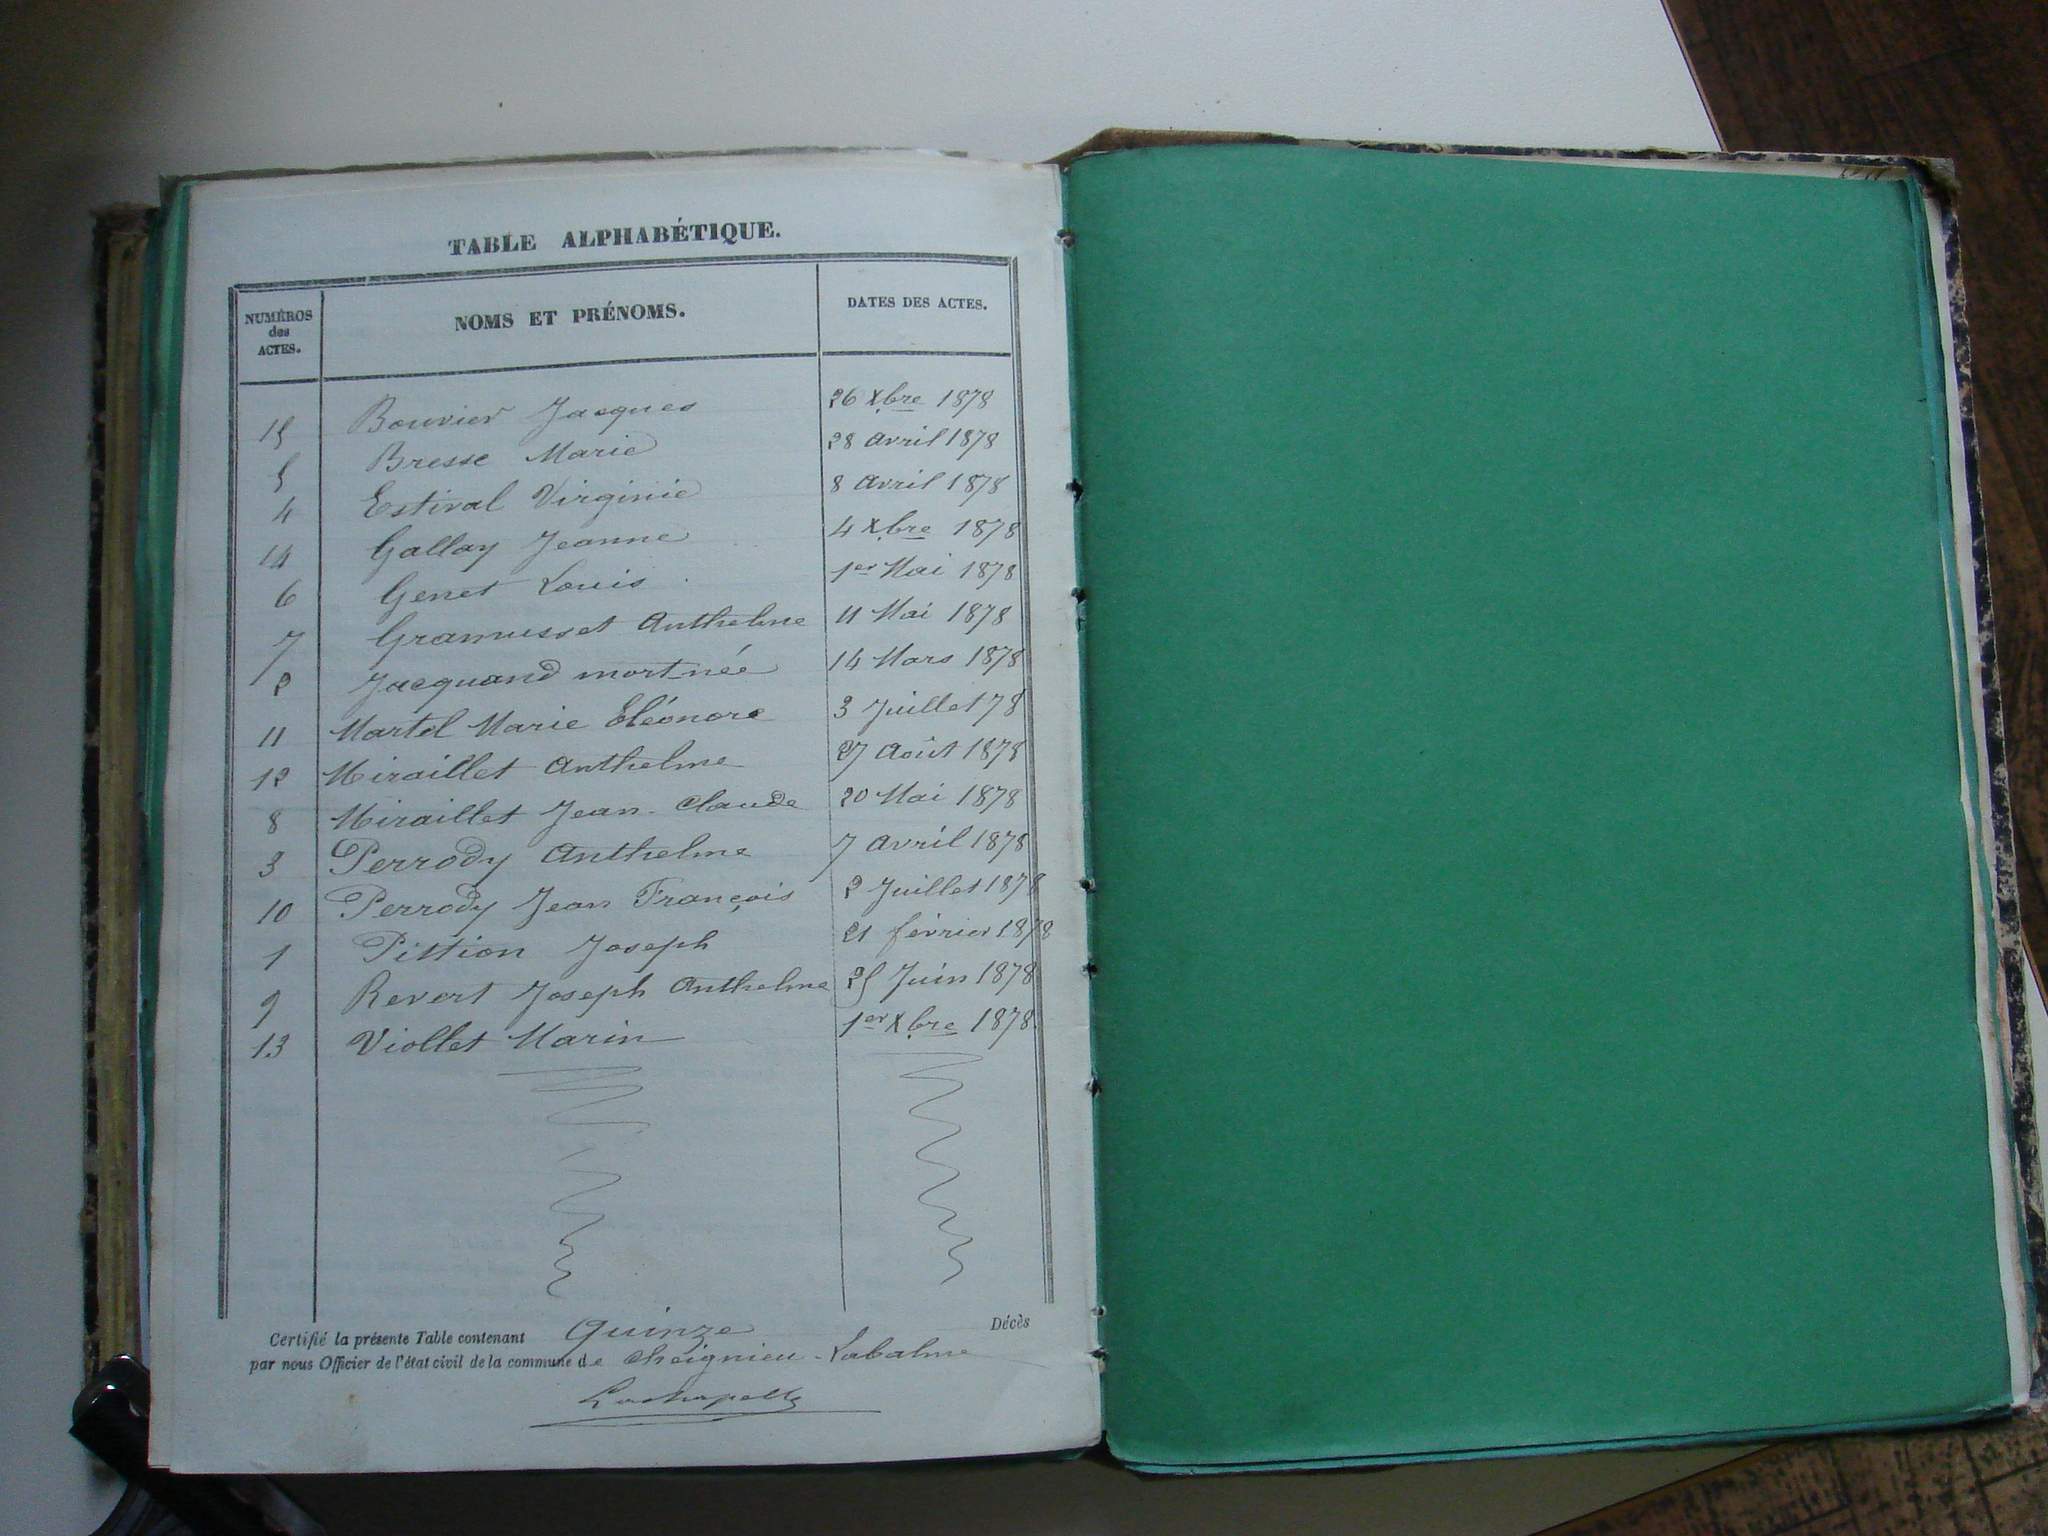 TABLE ALPHABÉTIQUE.
NUMÉROS des ACTES. NOMS ET PRÉNOMS. DATES DES ACTES.
15 Bouvier Jacques 26 Xbre 1878
5 Bresse Marie 28 avril 1878
4 Estival Virginie 8 avril 1878
14 Gallay Jeanne 4 Xbre 1878
6 Genet Louis 1er Mai 1878
7 Gramusset Anthelme 11 Mai 1878
2 Jacquand mort née 14 Mars 1878
11 Martel Marie Eléonore 3 Juillet 78
12 Miraillet Anthelme 27 Août 1878
8 Miraillet Jean-Claude 20 Mai 1878
3 Perrody Anthelme 7 avril 1878
10 Perrody Jean François 2 Juillet 1878
1 Pittion Joseph 21 février 1878
9 Revert Joseph Anthelme 25 Juin 1878
13 Viollet Marin 1er Xbre 1878
Certifié la présente Table contenant Quinze Décès
par nous Officier de l'état civil de la commune de Cheignieu-Labalme
Lachapelle